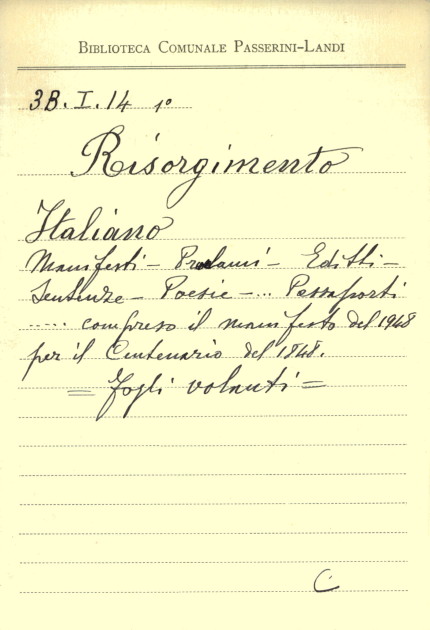 BIBLIOTECA COMUNALE PASSERINI-LANDI
3B.I.14 1º
Risorgimento
Italiano
Manifesti - Proclami - Editti -
Sentenze - Poesie - ... Passaporti
..... compreso il manifesto del 1948
per il Centenario del 1848.
= Fogli volanti =
C